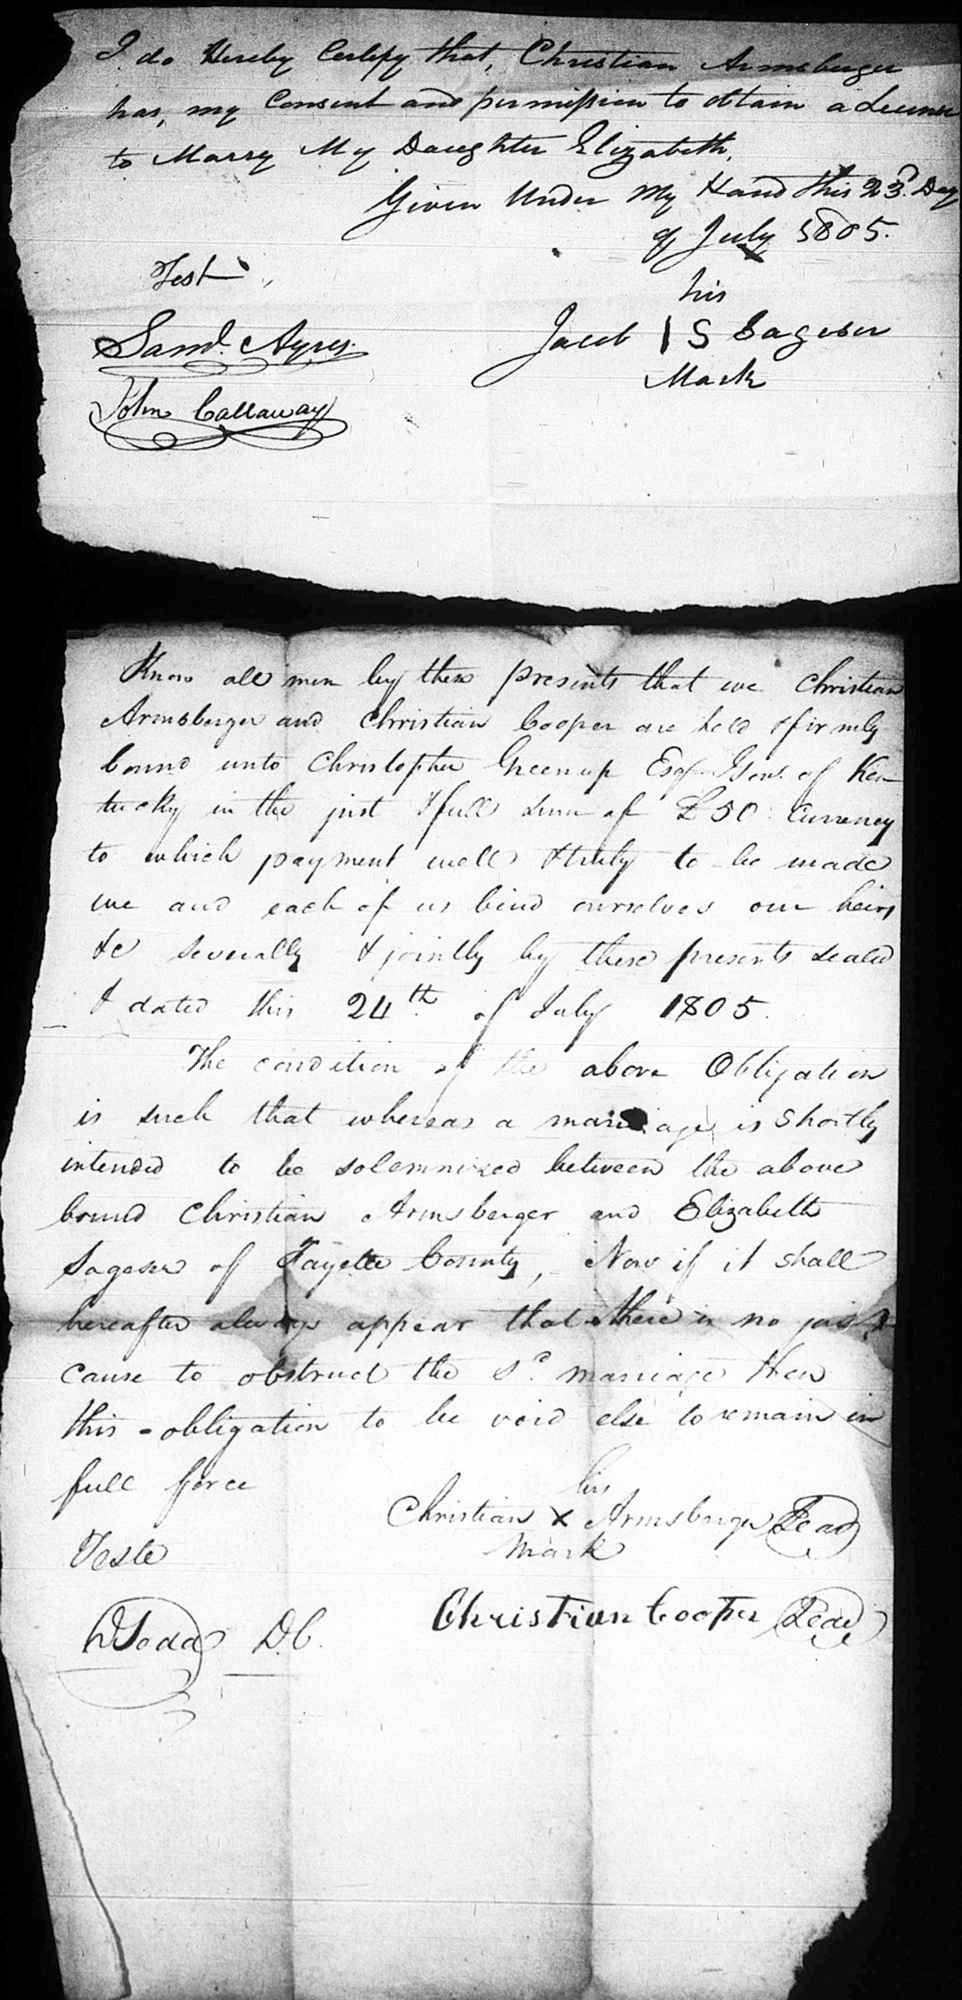 I do Hereby Certify that, Christian Armsberger
has, my Consent and permission to obtain a License
to Marry My Daughter Elizabeth.
Given Under My Hand this 23d. Day
of July 1805.
Test
his
Jacob I S Sageser
Mark
Saml. Ayres.
John Callaway
Know all men by these presents that we Christian
Armsberger and Christian Cooper are held & firmly
bound unto Christopher Greenup Esqr Govr. of Ken
tucky in the just & full sum of £50 Currency
to which payment well & truly to be made
we and each of us bind ourselves our heirs
&c severally & jointly by these presents sealed
& dated this 24th. of July 1805.
The condition of the above Obligation
is such that whereas a marriage is shortly
intended to be solemnized between the above
bound Christian Armsberger and Elizabeth
Sageser of Fayette County, Now if it shall
hereafter always appear that there is no just
cause to obstruct the sd. marriage then
this obligation to be void else to remain in
full force
his
Christian X Armsberger Seal
mark
Teste
Christian Cooper Seal
Todd D.C.